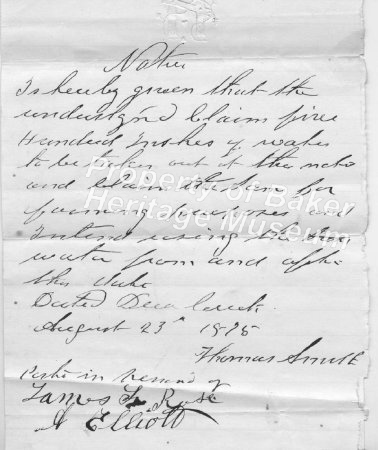 Notice
Is hereby given that the
undersign'd claim five
Hundred Inches of water
to be taken out at this
and claim the same for
farming purposes and
Intend using the
water from and after
this date
Dated Deer Creek
August 23rd 1875
Thomas Smith
in presence of
James F Rose
J Elliott
Property of Baker
Heritage Museum